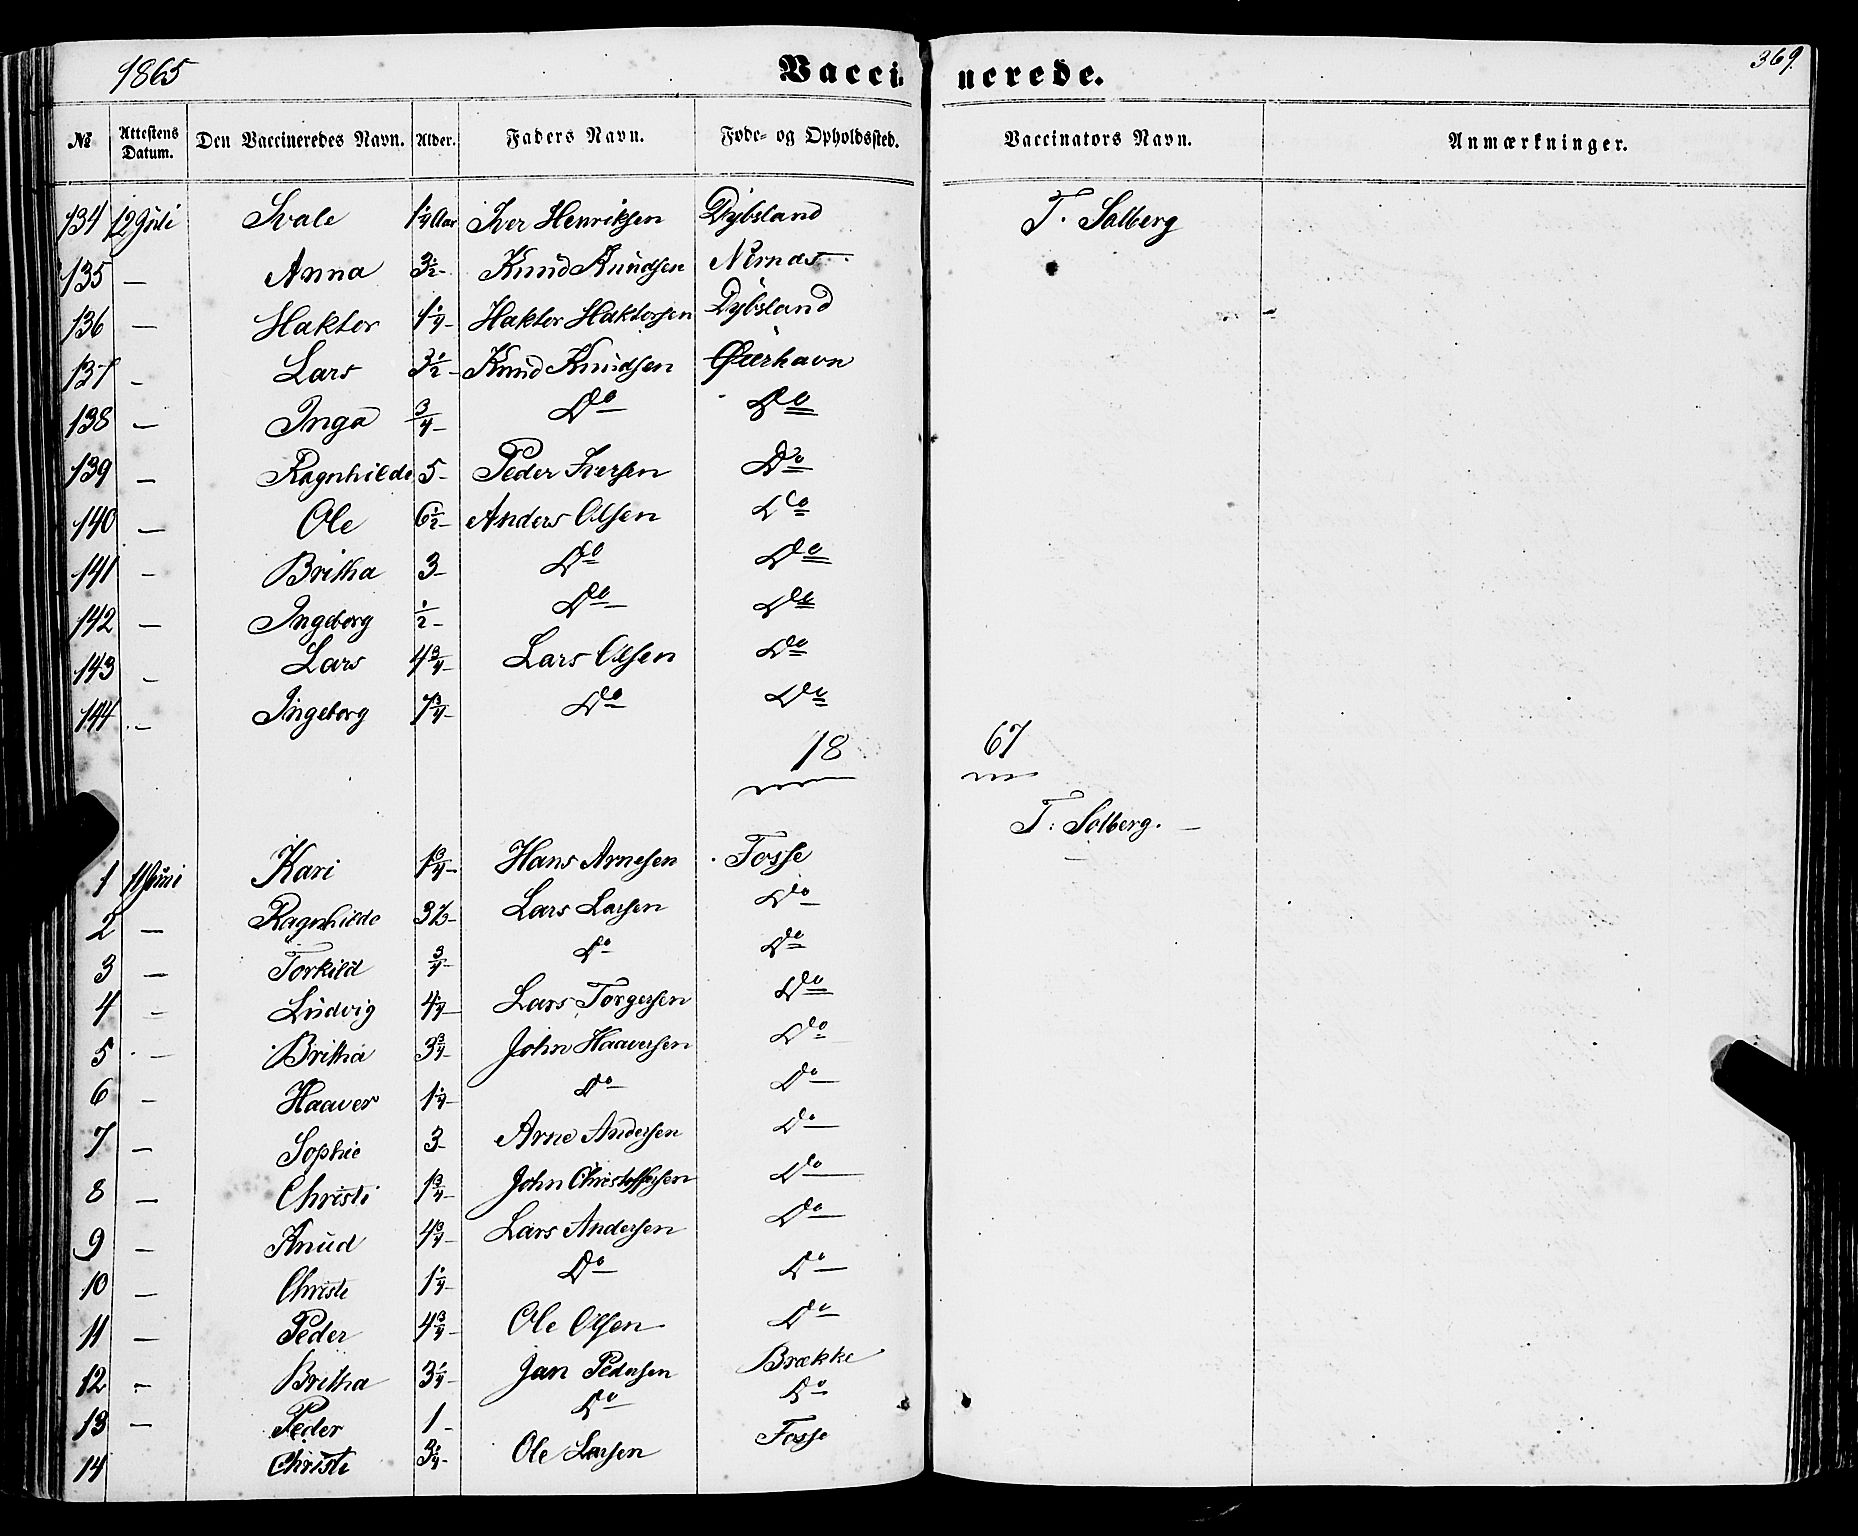 1865 Vaccinerede. 369.
№ Attestens Datum. Den Vaccineredes Navn. Alder. Faders Navn. Føde- og Opholdssted. Vaccinators Navn. Anmærkninger.
134 12 Juli Svale 1 1/4 Aar Iver Henriksen Dybsland T. Solberg
135 — Anna 3 1/2 - Knud Knudsen
136 — Haktor 1 1/4 - Haktor Haktorsen Dybsland
137 - Lars 3 1/2 - Knud Knudsen
138 — Inga 3/4 - Do Do
139 — Ragnhilde 5 - Peder Iversen Do
140 — Ole 6 1/2 - Anders Olsen Do
141 - Britha 3 - Do Do
142 — Ingeborg 1/2 - Do Do
143 - Lars 4 3/4 - Lars Olsen Do
144 - Ingeborg 1 3/4 - Do Do
18 67
T: Solberg. —
1 11 Juni Kari 1 3/4 - Hans Arnesen Tosse
2 — Ragnhilde 3 - Lars Larsen Do
3 — Torkild 3/4 - Do Do
4 — Ludvig 4 1/4 - Lars Torgersen Do
5 — Britha 3 3/4 - John Haaversen Do
6 - Haaver 1 1/4 - Do Do
7 — Sophie 3 - Arne Andersen Do
8 — Christi 1 3/4 - John Christoffersen Do
9 — Knud 4 3/4 - Lars Andersen Do
10 — Christi 1 1/4 - Do Do
11 — Peder 4 3/4 - Ole Olsen Do
12 - Britha 3 1/4 - Jan Pedersen Brække
13 — Peder 1 - Do Do
14 Christi 3 1/4 - Ole Larsen Fosse